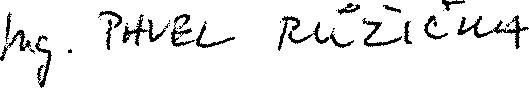 Ing. PAVEL RŮŽIČKA